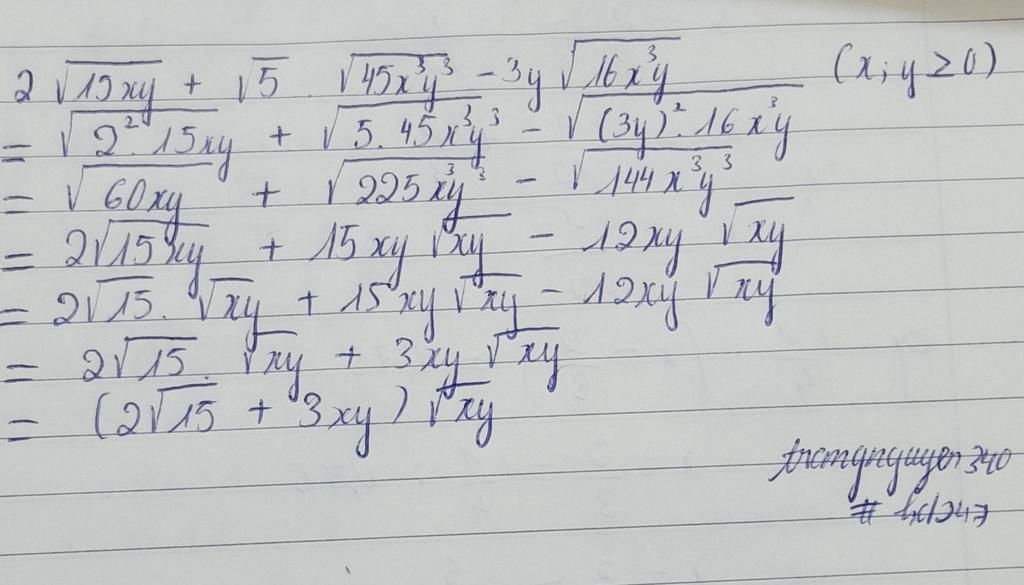 2 √15xy + √5 . √45x³y³ - 3y √16x³y (x; y ≥ 0)
= √2² . 15xy + √5.45x³y³ - √(3y)² . 16x³y
= √60xy + √225x³y³ - √144x³y³
= 2√15xy + 15xy √xy - 12xy √xy
= 2√15 . √xy + 15xy √xy - 12xy √xy
= 2√15 . √xy + 3xy √xy
= (2√15 + 3xy) √xy
trcmgnguyen340
#